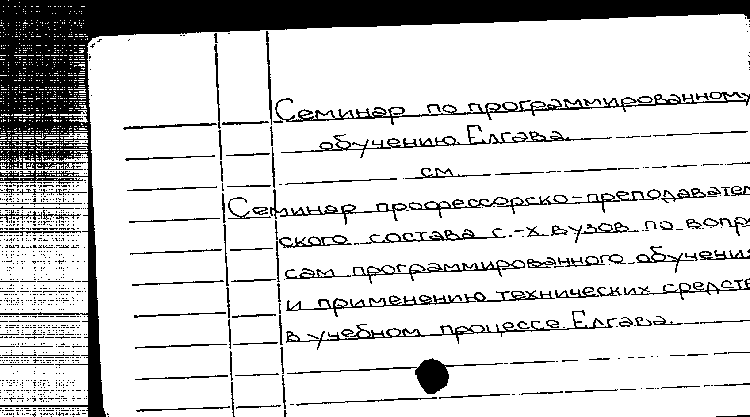 Семинар по программированному
обучению. Елгава.
см.
Семинар профессорско-преподаватель
ского состава с.-х вузов по вопро
сам программированного обучения
и применению технических средств
в учебном процессе. Елгава.